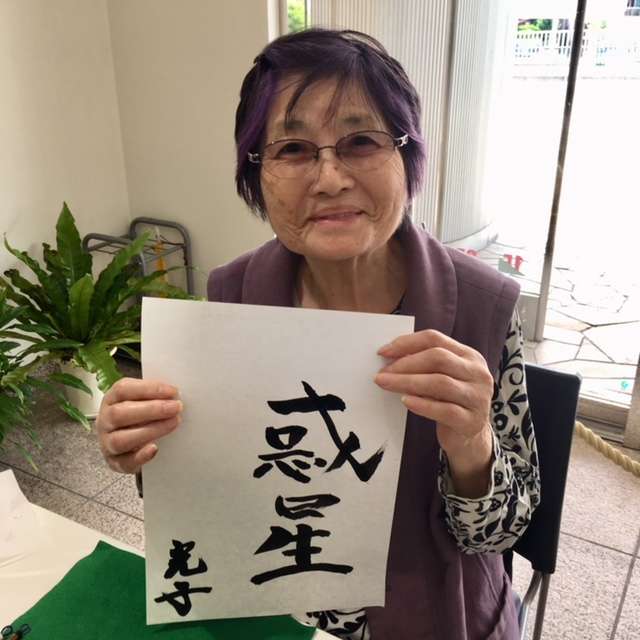 惑星
光子